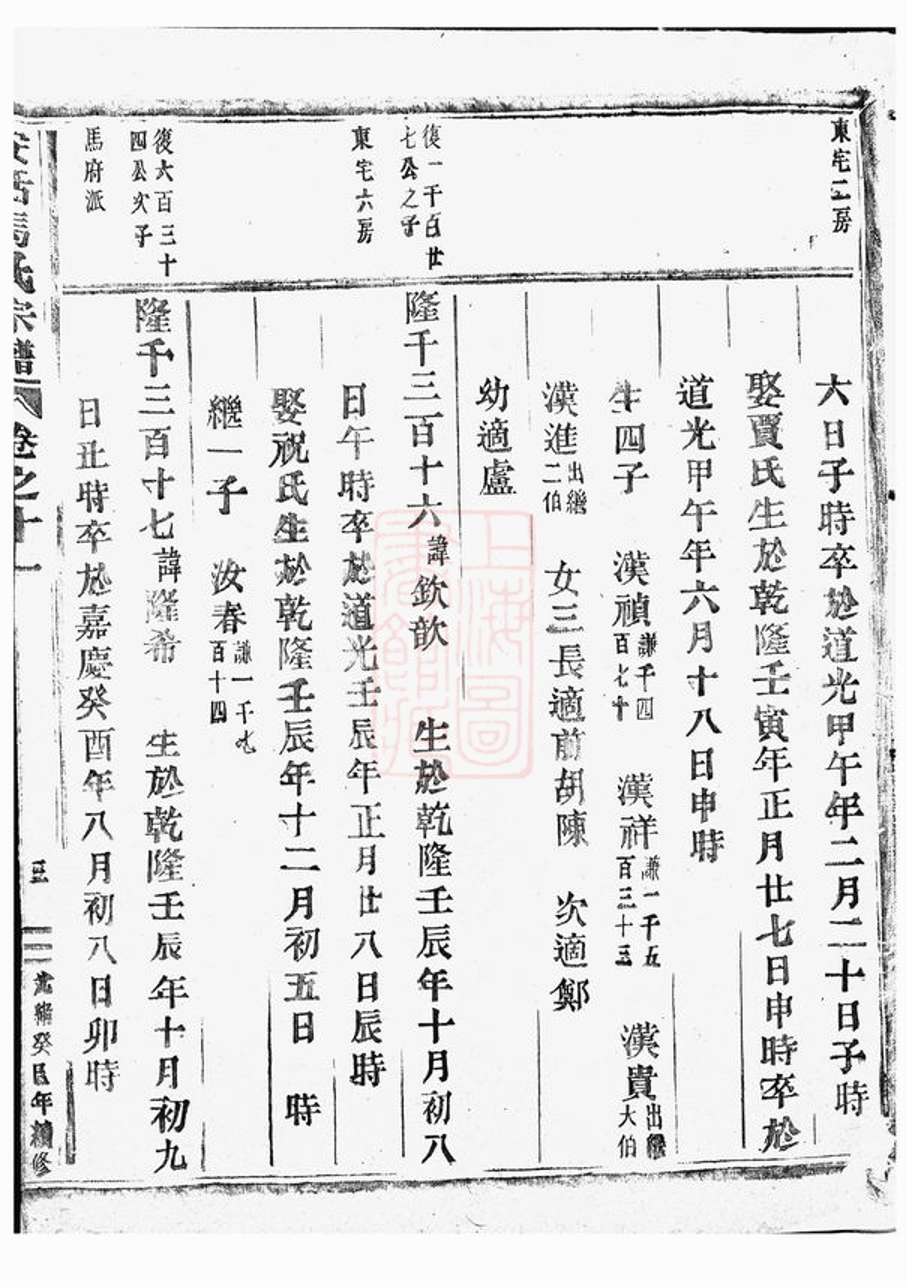 東宅二房
六日子時卒於道光甲午年二月二十日子時
娶賈氏生於乾隆壬寅年正月廿七日申時卒於
道光甲午年六月十八日申時
生四子 漢禎謙千四百七十 漢祥謙一千五百三十三 漢貴出繼大伯
漢進出繼二伯 女三長適前胡陳 次適鄭
幼適盧
復一千百廿
七公之子
東宅六房
隆千三百十六諱欽歆 生於乾隆壬辰年十月初八
日午時卒於道光壬辰年正月廿八日辰時
娶祝氏生於乾隆壬辰年十二月初五日 時
繼一子 汝春謙一千九百十四
復六百三十
四公次子
馬府派
隆千三百十七諱隆希 生於乾隆壬辰年十月初九
日丑時卒於嘉慶癸酉年八月初八日卯時
馬氏宗譜 卷之十一 三 光緒癸巳年續修
上海圖書館藏